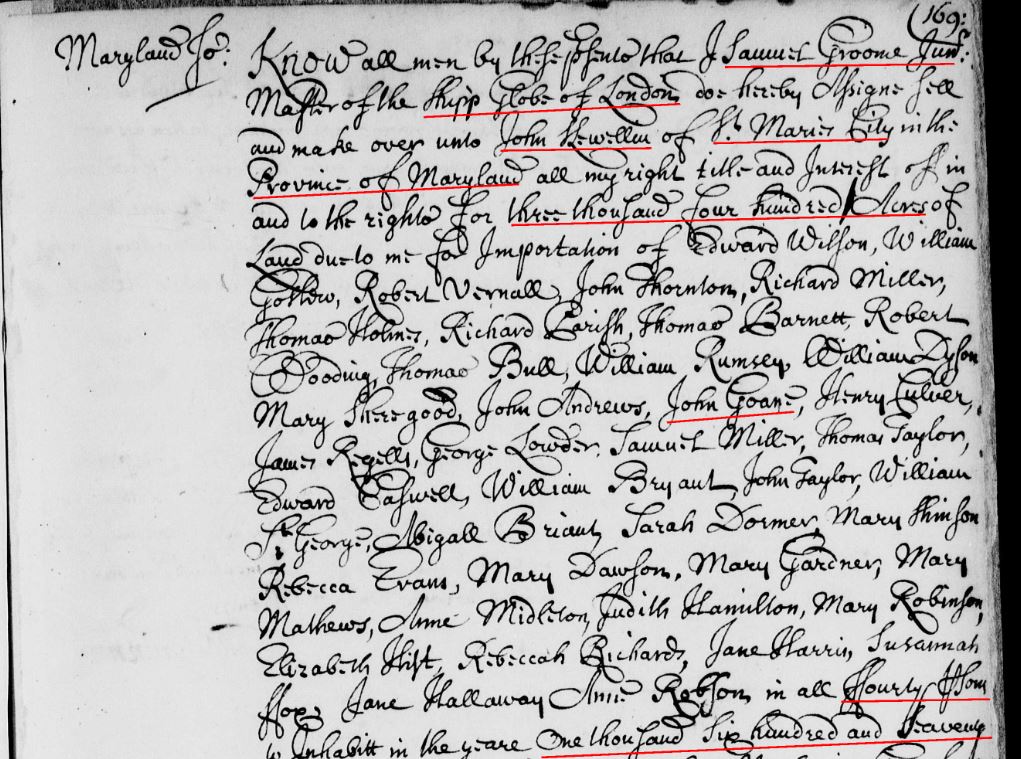 (169:
Maryland ss: Know all men by these psents that I Samuel Groome Junr:
Master of the Shipp Globe of London doe hereby Assigne sell
and make over unto John Lewellin of St. Maries Citty in the
Province of Maryland all my right title and Interest of in
and to the rights for three thousand four hundred Acres of
Land due to me for Importation of Edward Wilson, William
Robert Vernall, John Thornton, Richard Miller,
Thomas Holmes, Richard Parish, Thomas Barnett, Robert
Wooding, Thomas Bull, William Rumsey, William Dyson
Mary Sheregood, John Andrews, John Goane, Henry Culver,
James Regells, George Lowder, Samuel Miller, Thomas Taylor,
Edward Caswell, William Bryant, John Taylor, William
St. George, Abigall Briant, Sarah Dormer, Mary Stinson
Rebecca Evans, Mary Dawson, Mary Gardner, Mary
Mathews, Anne Midleton, Judith Hamilton, Mary Robinson,
Elizabeth Hist, Rebeccah Richards, Jane Harris, Susannah
ffox, Jane Hallaway Anne Robson in all ffourty ffour
to Inhabitt in the yeare One thousand Six hundred and Seaventy